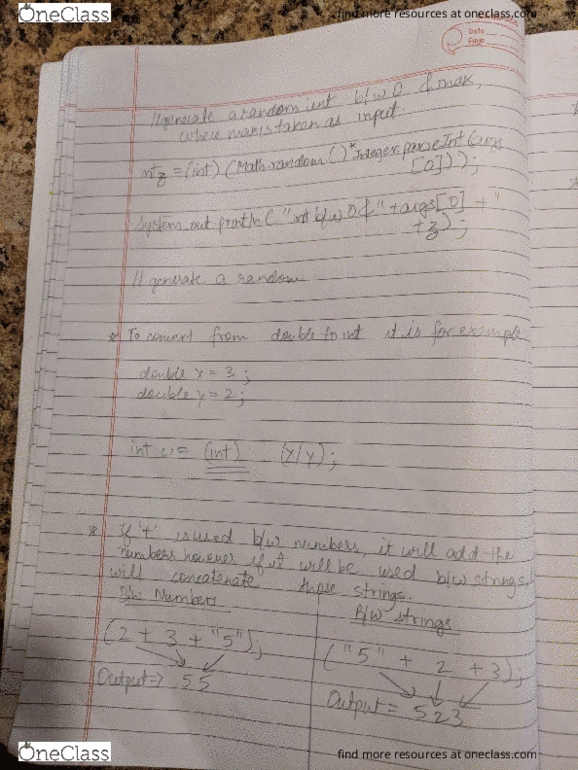 OneClass
find more resources at oneclass.com
Date
Page
//generate a random int b/w 0 & max,
where max is taken as input
int z = (int) (Math.random()*Integer.parseInt(args
[0]));
System.out.println("int b/w 0 &" + args[0] + "
+z);
// generate a random
* To convert from double to int it is for example
double x = 3;
double y = 2;
int w = (int) (x/y);
* If '+' is used b/w numbers, it will add the
numbers however if it will be used b/w strings
will concatenate those strings.
B/w Numbers
B/W strings
(2 + 3 + "5");
("5" + 2 + 3);
Output => 55
Output = 523
OneClass
find more resources at oneclass.com